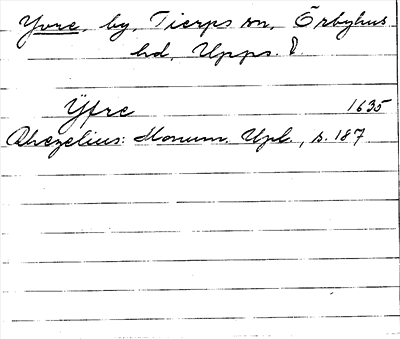 Yvre, by, Tierps sn, Örbyhus
hd, Upps.
Yfre 1635
Rhezelius: Monum. Upl., s. 187